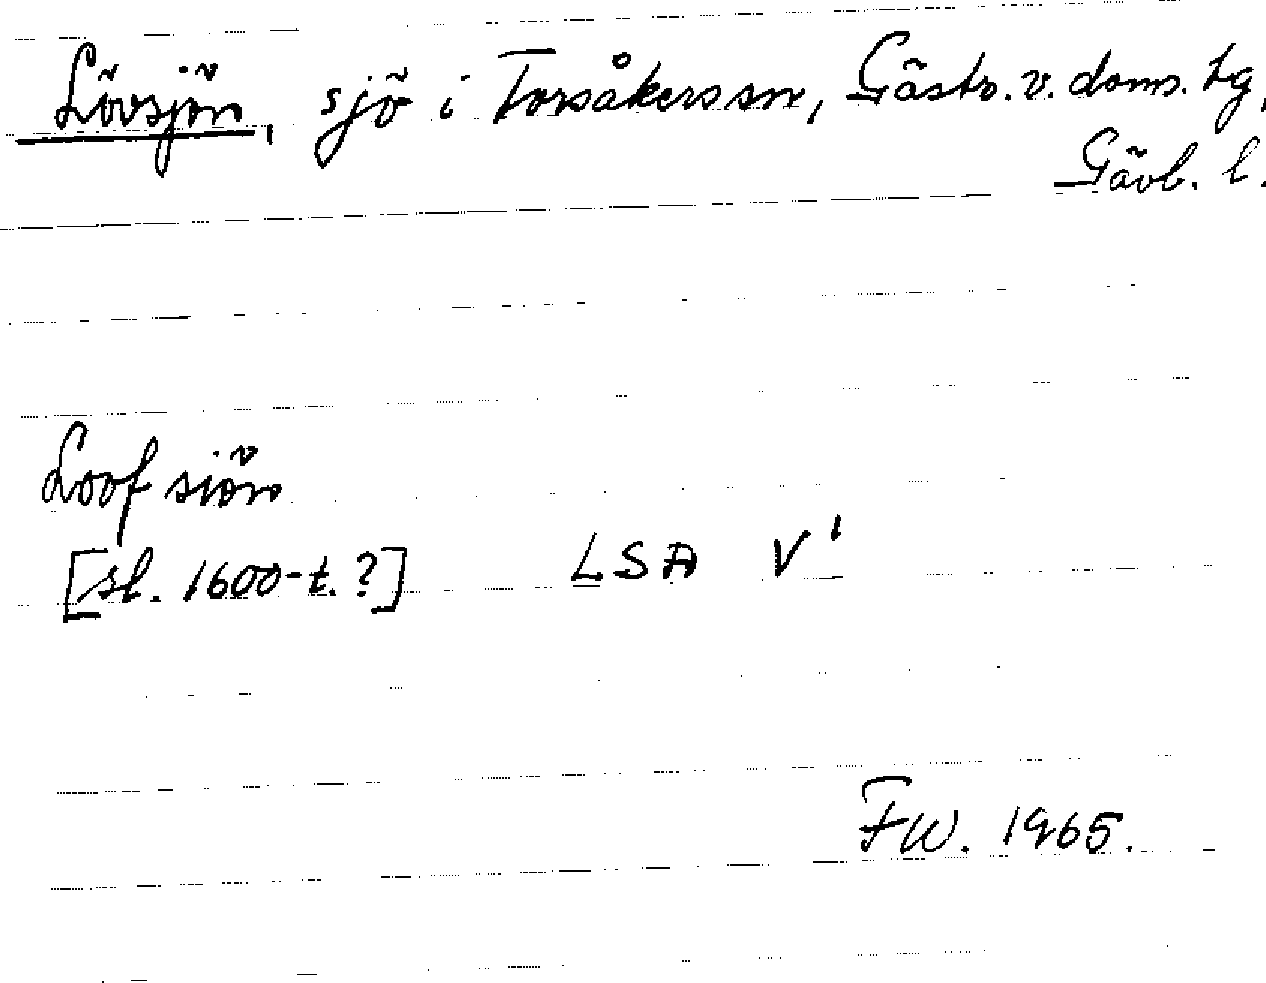 Lövsjön, sjö i Torsåkers sn, Gästr. v. doms. tg,
Gävb. l.
Loof siön
[sl. 1600-t.?] LSA V¹
FW. 1965.